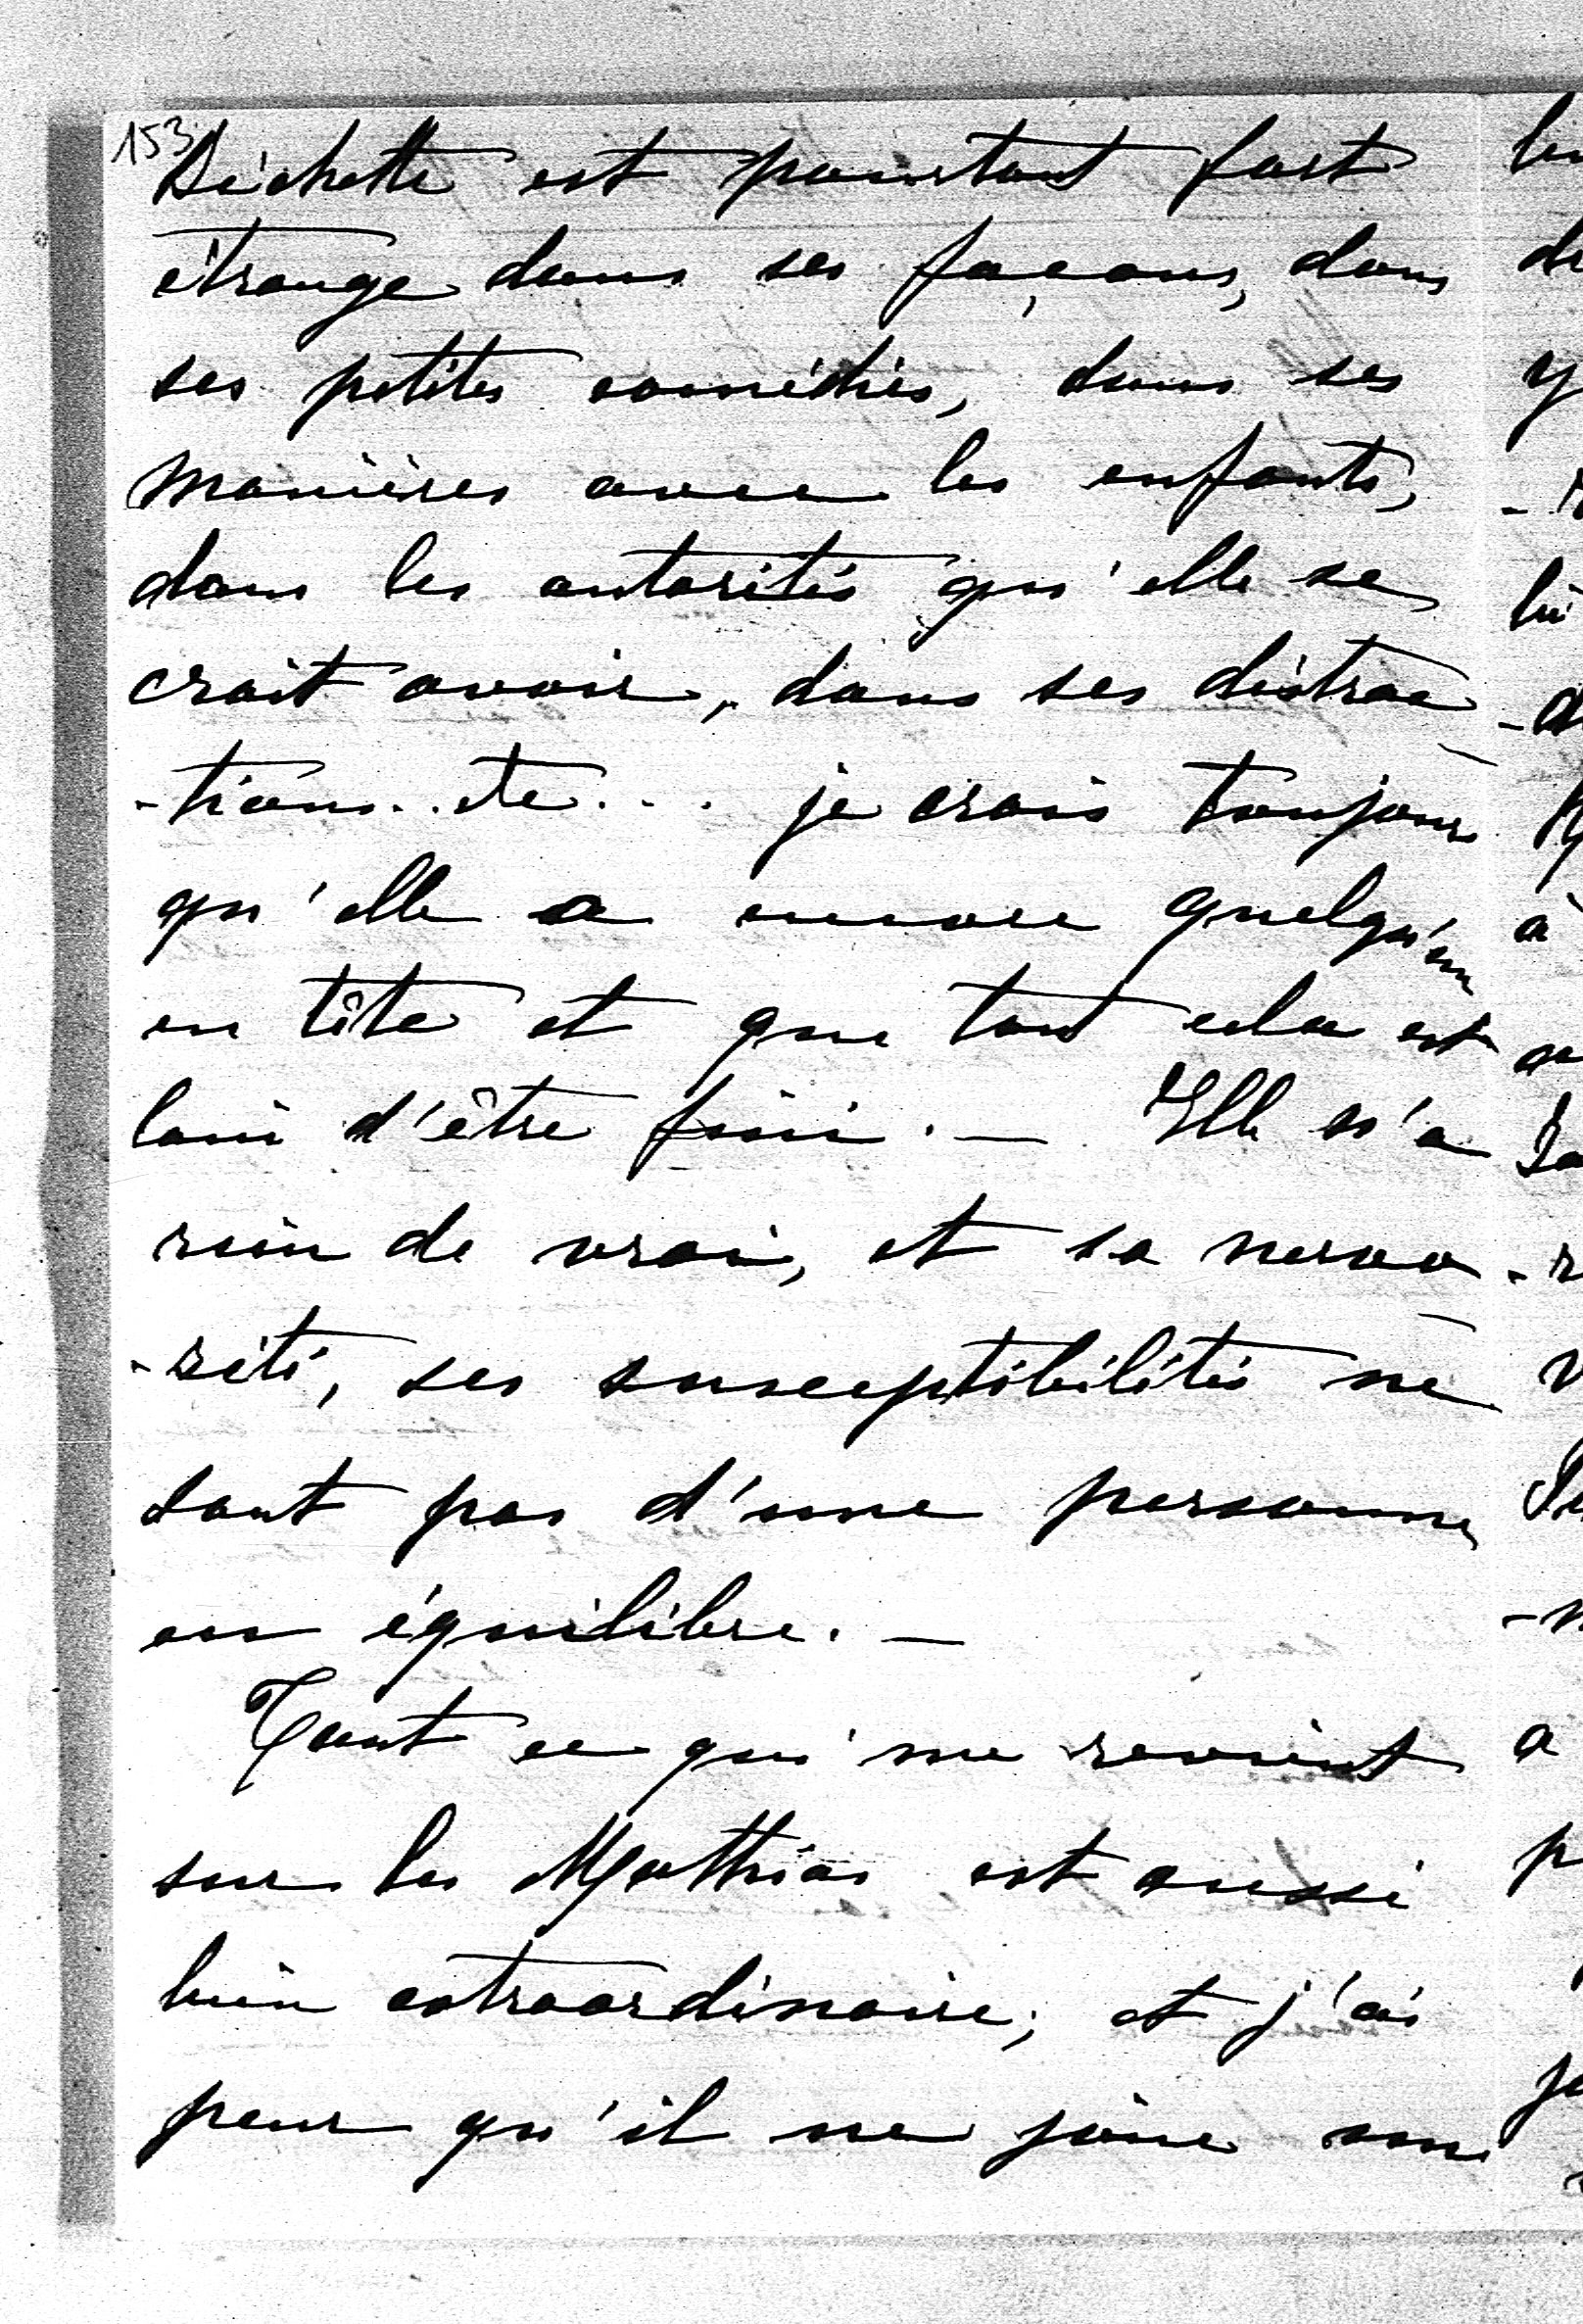 153
est pourtant fort
étrange dans ses façons, dans
ses petites comédies, dans ses
manières avec les enfants,
dans les autorités qu'elle se
croit avoir, dans ses distrac
-tions.. etc... je crois toujours
qu'elle a encore quelqu'un
en tête et que tout cela est
loin d'être fini. — Elle n'a
rien de vrai, et sa nervo
-sité, ses susceptibilités ne
sont pas d'une personne
en équilibre. —
Tout ce qui me revient
sur les Matthias est aussi
bien extraordinaire; et j'ai
peur qu'il ne joue un